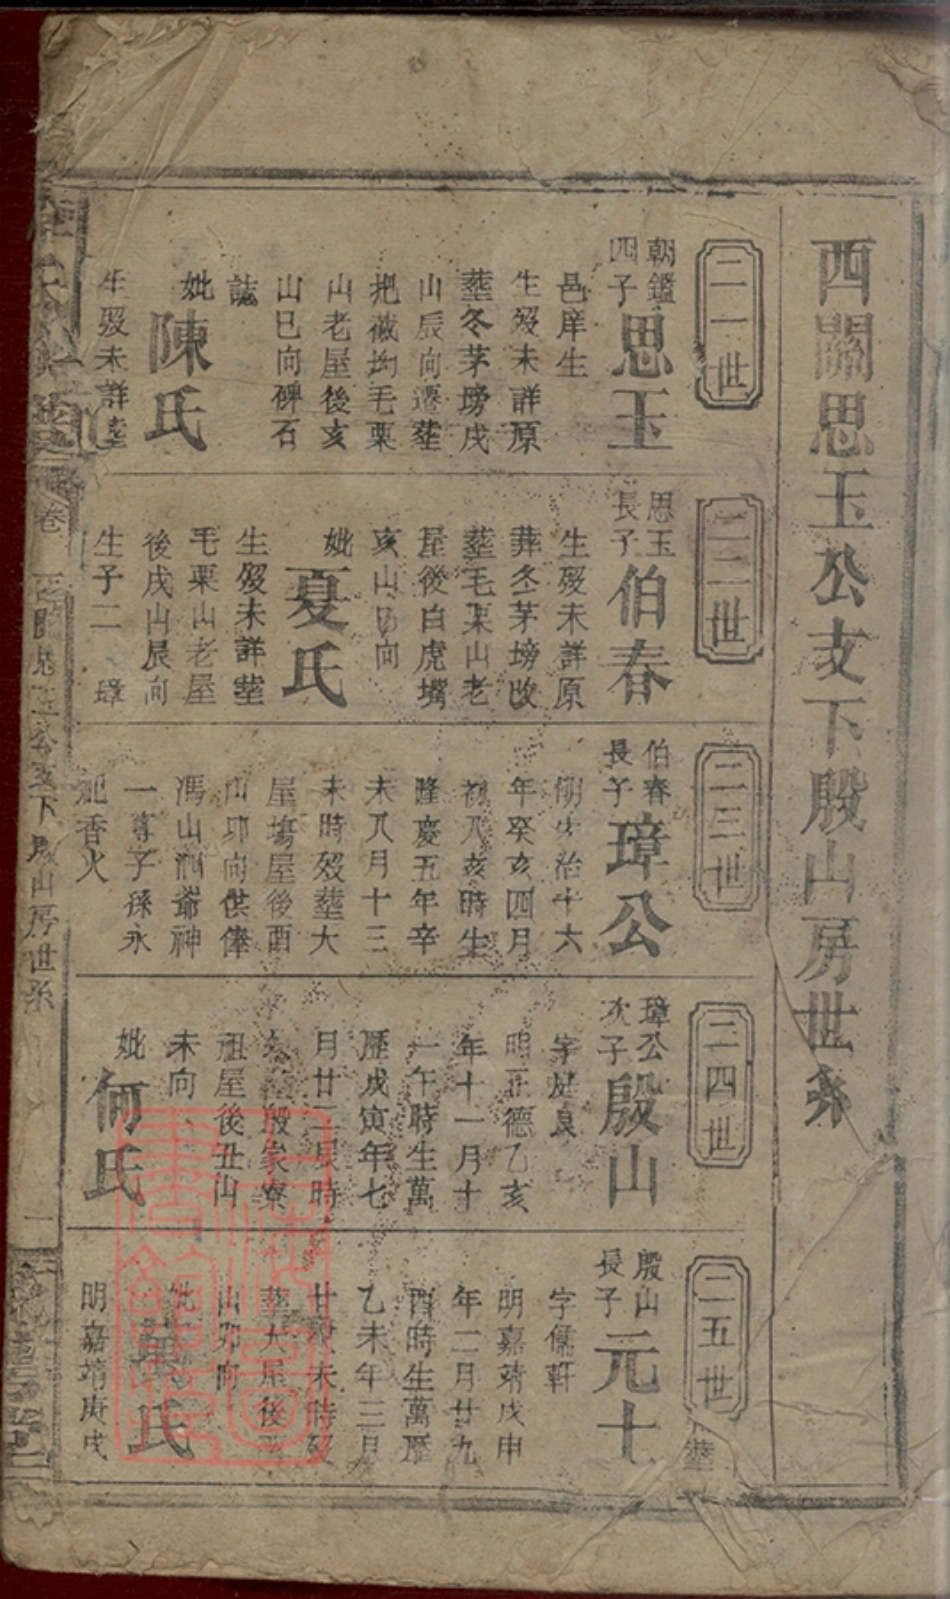 西關思玉公支下殷山房世系
二一世
朝鑑
四子
思玉
邑庠生
生殁未詳原
塟冬茅塝戌
山辰向遷塟
把薇坳毛栗
山老屋後亥
山巳向碑石
誌
妣陳氏
生殁未詳塟
二二世
思玉
長子
伯春
生殁未詳原
葬冬茅塝改
塟毛栗山老
屋後白虎嘴
亥山巳向
妣夏氏
生殁未詳塟
毛栗山老屋
後戌山辰向
生子二 璋
二三世
伯春
長子
璋公
明弘治十六
年癸亥四月
初八亥時生
隆慶五年辛
未八月十三
未時殁塟大
屋塲屋後酉
山卯向供俸
馮山洞爺神
一尊子孫永
祀香火
二四世
璋公
次子
殷山
字廷良
明正德乙亥
年十一月十
一午時生萬
歷戊寅年七
月廿二辰時
殷家寮
祖屋後丑山
未向
妣何氏
二五世
殷山
長子
元十
字儒軒
明嘉靖戊申
年二月廿九
酉時生萬歷
乙未年三月
廿 未時殁
塟大屋後
山卯向
妣 氏
明嘉靖庚戌
塟
卷
西關思玉公支下殷山房世系
一